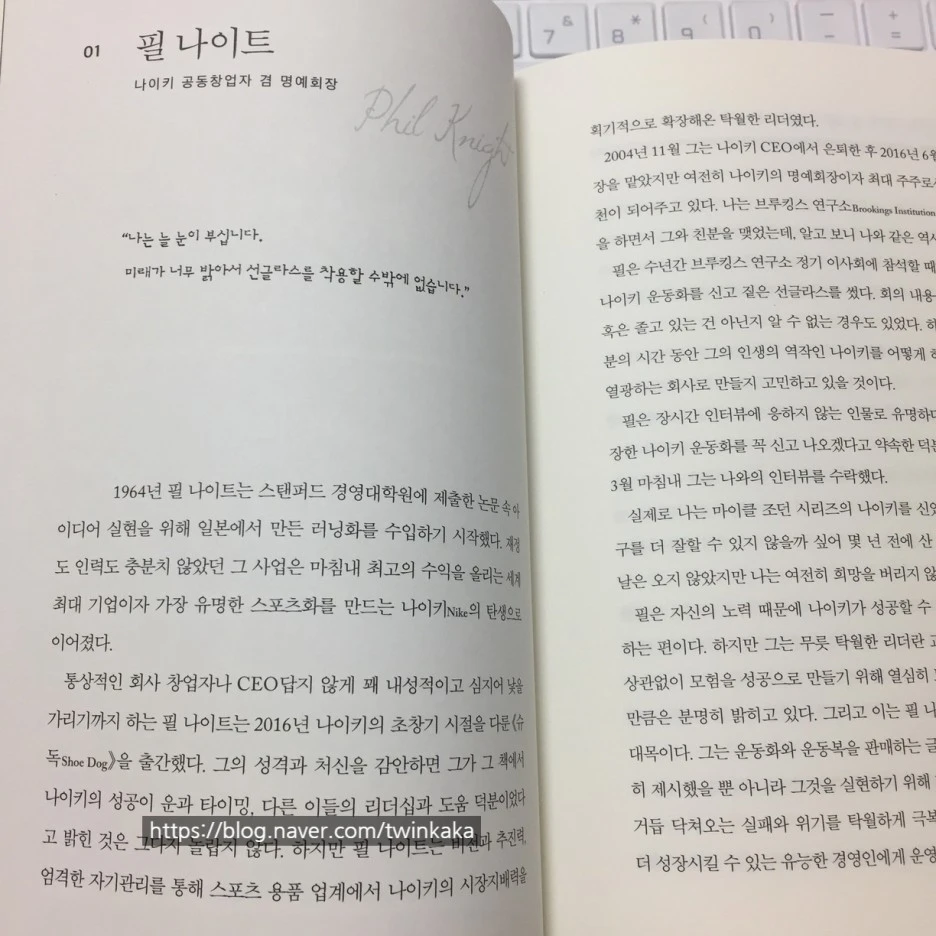 01 필 나이트
나이키 공동창업자 겸 명예회장
Phil Knight
“나는 늘 눈이 부십니다.
미래가 너무 밝아서 선글라스를 착용할 수밖에 없습니다.”
1964년 필 나이트는 스탠퍼드 경영대학원에 제출한 논문 속 아
이디어 실현을 위해 일본에서 만든 러닝화를 수입하기 시작했다. 재정
도 인력도 충분치 않았던 그 사업은 마침내 최고의 수익을 올리는 세계
최대 기업이자 가장 유명한 스포츠화를 만드는 나이키Nike의 탄생으로
이어졌다.
통상적인 회사 창업자나 CEO답지 않게 꽤 내성적이고 심지어 낯을
가리기까지 하는 필 나이트는 2016년 나이키의 초창기 시절을 다룬 《슈
독Shoe Dog》을 출간했다. 그의 성격과 처신을 감안하면 그가 그 책에서
나이키의 성공이 운과 타이밍, 다른 이들의 리더십과 도움 덕분이었다
고 밝힌 것은 그다지 놀랍지 않다. 하지만 필 나이트는 비전과 추진력,
엄격한 자기관리를 통해 스포츠 용품 업계에서 나이키의 시장지배력을
https://blog.naver.com/twinkaka
7 & 8 * 9 ( 0 ) - = +
회기적으로 확장해온 탁월한 리더였다.
2004년 11월 그는 나이키 CEO에서 은퇴한 후 2016년 6
장을 맡았지만 여전히 나이키의 명예회장이자 최대 주주로
천이 되어주고 있다. 나는 브루킹스 연구소Brookings Institution
을 하면서 그와 친분을 맺었는데, 알고 보니 나와 같은 역사
필은 수년간 브루킹스 연구소 정기 이사회에 참석할 때
나이키 운동화를 신고 짙은 선글라스를 썼다. 회의 내용
혹은 졸고 있는 건 아닌지 알 수 없는 경우도 있었다. 하
분의 시간 동안 그의 인생의 역작인 나이키를 어떻게
열광하는 회사로 만들지 고민하고 있을 것이다.
필은 장시간 인터뷰에 응하지 않는 인물로 유명하다
장한 나이키 운동화를 꼭 신고 나오겠다고 약속한 덕분
3월 마침내 그는 나와의 인터뷰를 수락했다.
실제로 나는 마이클 조던 시리즈의 나이키를 신었
구를 더 잘할 수 있지 않을까 싶어 몇 년 전에 산
날은 오지 않았지만 나는 여전히 희망을 버리지 않
필은 자신의 노력 때문에 나이키가 성공할 수
하는 편이다. 하지만 그는 무릇 탁월한 리더란
상관없이 모험을 성공으로 만들기 위해 열심히
만큼은 분명히 밝히고 있다. 그리고 이는 필 나
대목이다. 그는 운동화와 운동복을 판매하는 글
히 제시했을 뿐 아니라 그것을 실현하기 위해
거듭 닥쳐오는 실패와 위기를 탁월하게 극복
더 성장시킬 수 있는 유능한 경영인에게 운영